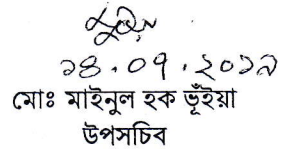 ১৪.০৭.২০১৯
মোঃ মাইনুল হক ভূঁইয়া
উপসচিব